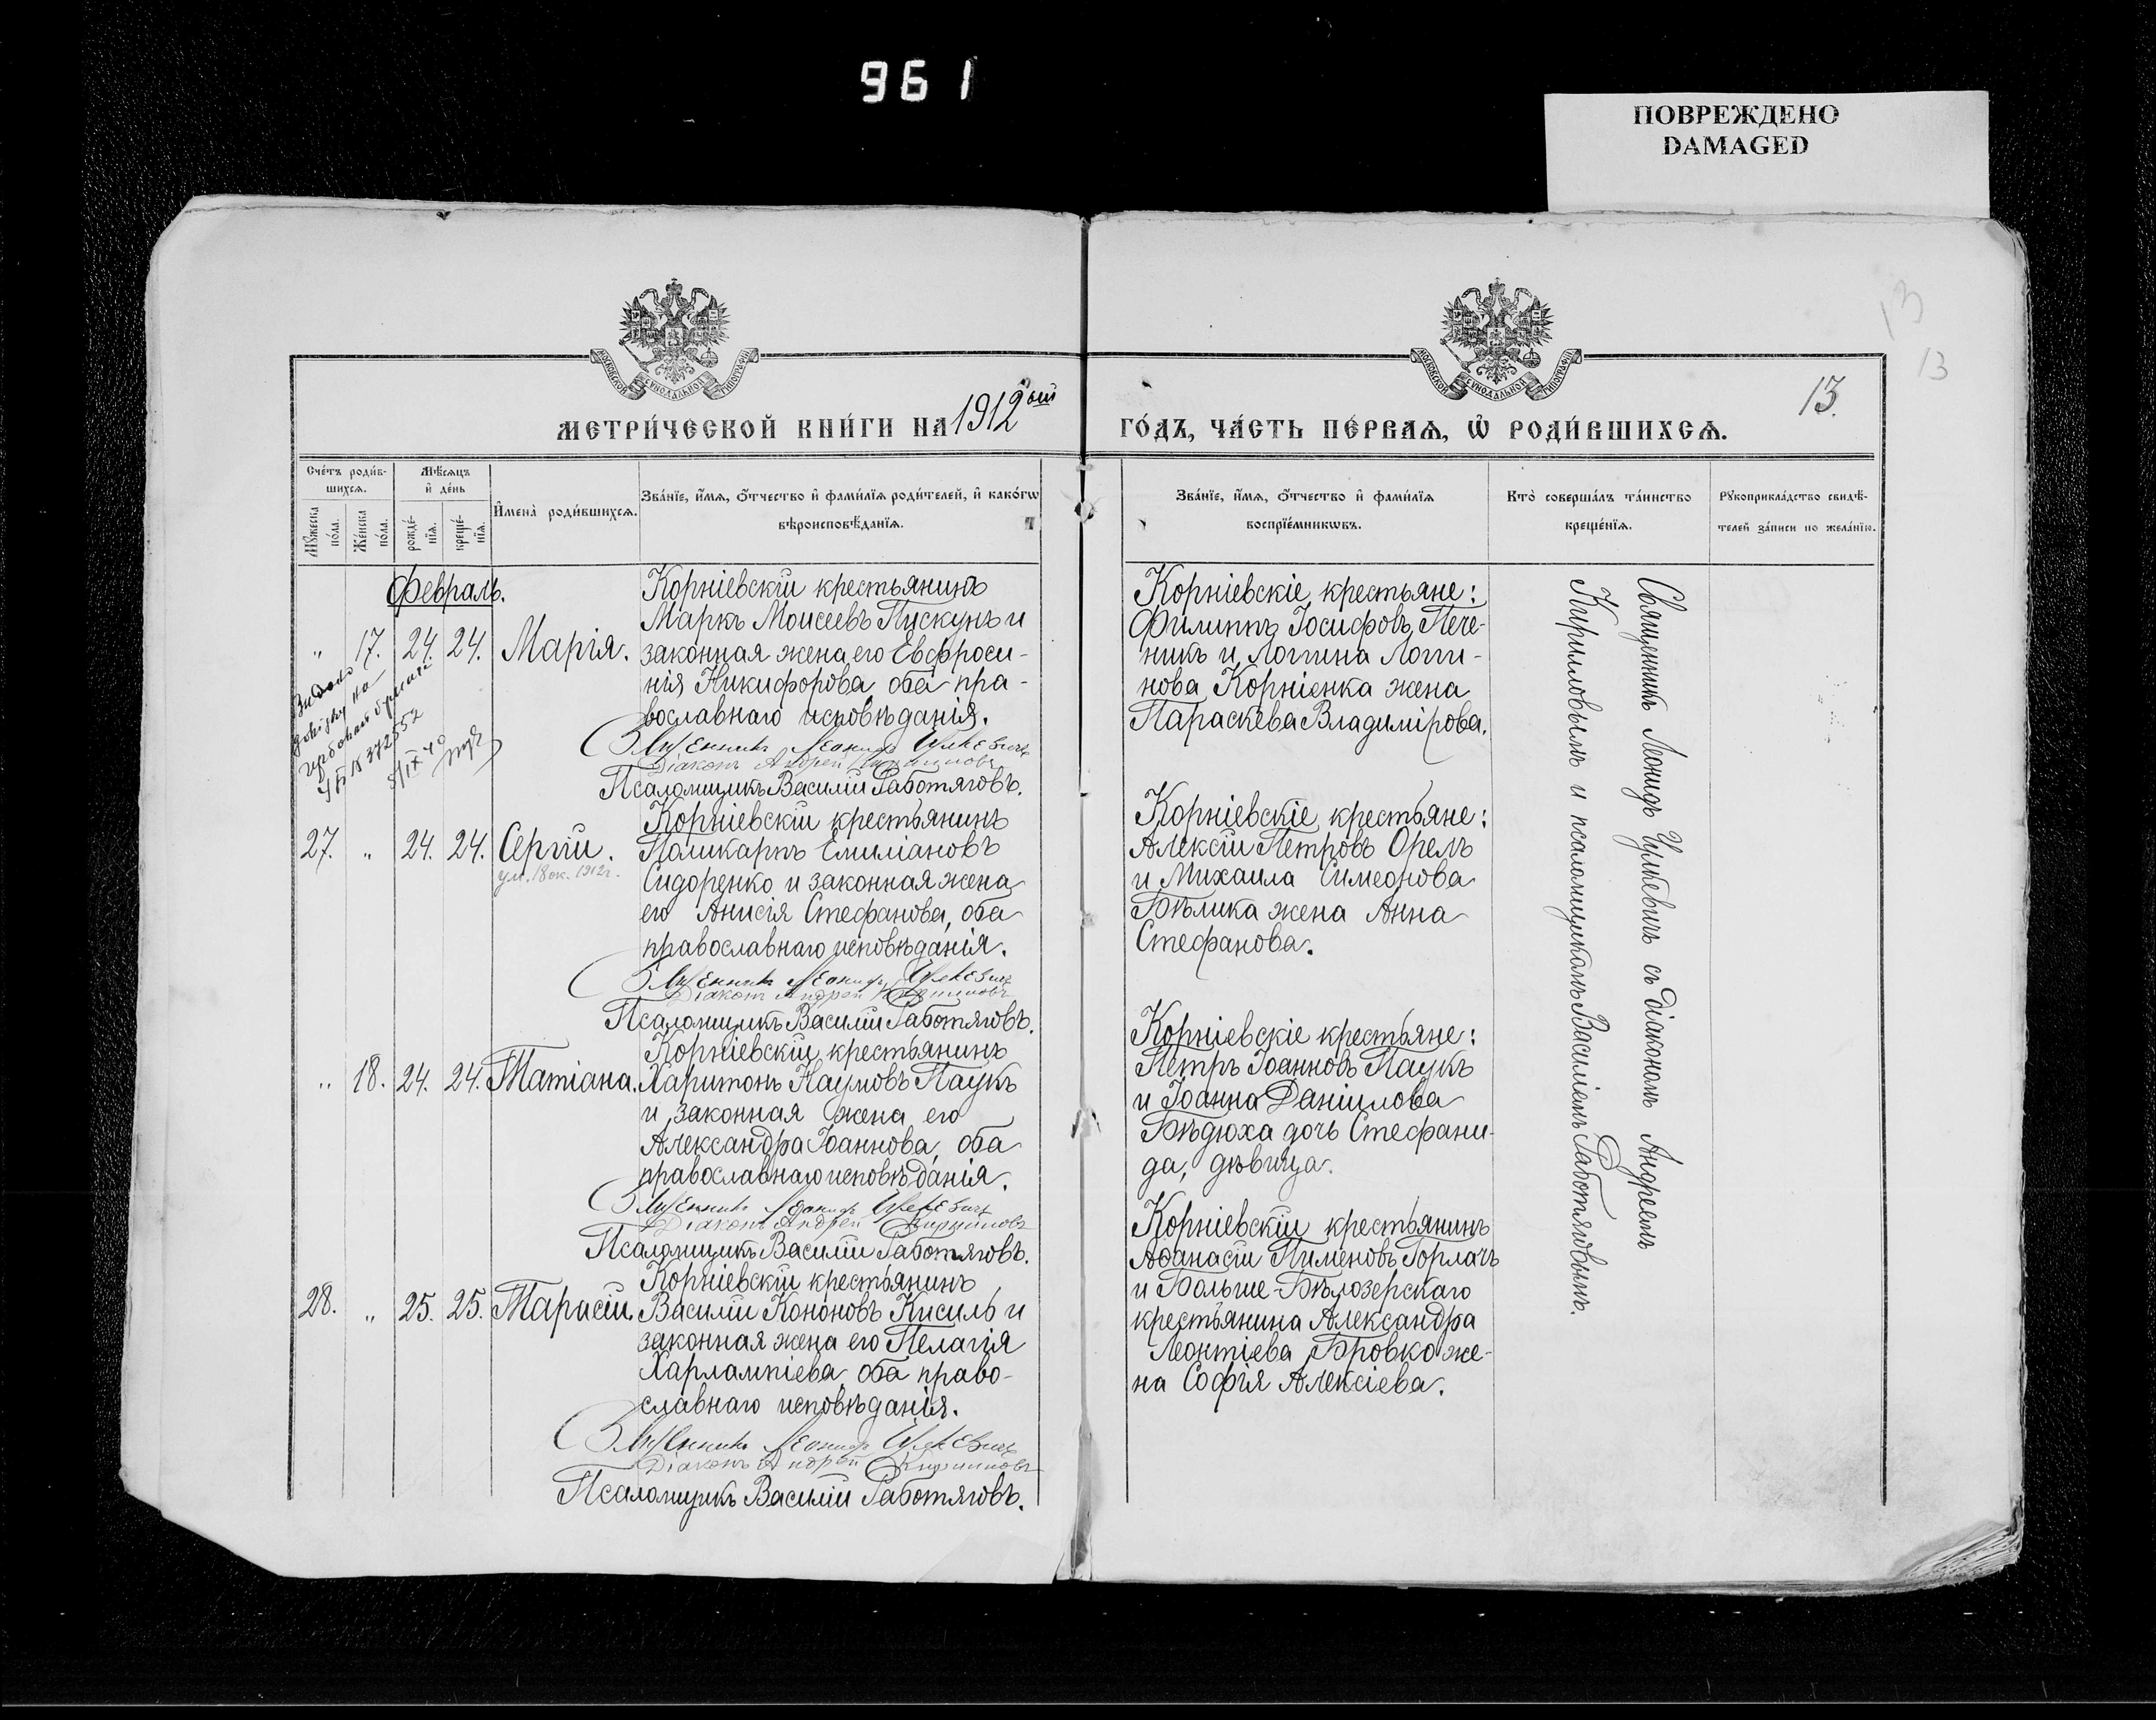 961
ПОВРЕЖДЕНО
DAMAGED
13
13
13.
МОСКОВСКОЙ СѴНОДАЛЬНОЙ ТИПОГРАФІИ
МОСКОВСКОЙ СѴНОДАЛЬНОЙ ТИПОГРАФІИ
МЕТРИ́ЧЕСКОЙ КНИ́ГИ НА 1912ый
ГО́ДЪ, ЧА́СТЬ ПЕ́РВАѦ, Ѡ РОДИ́ВШИХСѦ.
Сче́тъ роди́в-
шихсѧ.
Мꙋжеска по́ла.
Же́нска по́ла.
Мѣ́сѧцъ
и҆ де́нь
рожде́-
нїѧ.
креще́-
нїѧ.
И҆мена̀ роди́вшихсѧ.
Зва́нїе, и҆́мѧ, ѻ҆́тчество и҆ фами́лїѧ роди́телей, и҆ како́гѡ
вѣроисповѣ́данїѧ.
Зва́нїе, и҆́мѧ, ѻ҆́тчество и҆ фами́лїѧ
воспрїе́мникѡвъ.
Кто̀ соверша́лъ та́инство
креще́нїѧ.
Рꙋкоприкла́дство свидѣ́-
телей за́писи по жела́нїю.
Февраль.
„ 17. 24. 24. Марія.
Корніевскій крестьянинъ
Маркъ Моисеевъ Пискунъ и
законная жена его Евфроси-
нія Никифорова, оба пра-
вославнаго исповѣданія.
Священникъ Леонидъ
Діаконъ Андрей Кирилловъ
Псаломщикъ Василій Работяговъ.
Корніевскіе крестьяне:
Филиппъ Іосифовъ Пече-
никъ и Логгина Логги-
нова Корніенка жена
Параскева Владимірова.
Видано
довідку на
гербовом бумагі
№ 372552
5/IX 40
27. „ 24. 24. Сергій.
ум. 18 ок. 1912 г.
Корніевскій крестьянинъ
Поликарпъ Емиліановъ
Сидоренко и законная жена
его Анисія Стефанова, оба
православнаго исповѣданія.
Священникъ Леонидъ
Діаконъ Андрей Кирилловъ
Псаломщикъ Василій Работяговъ.
Корніевскіе крестьяне:
Алексій Петровъ Орелъ
и Михаила Симеонова
Бѣлика жена Анна
Стефанова.
„ 18. 24. 24. Татіана.
Корніевскій крестьянинъ
Харитонъ Наумовъ Паукъ
и законная жена его
Александра Іоаннова, оба
православнаго исповѣданія.
Священникъ Леонидъ
Діаконъ Андрей Кирилловъ
Псаломщикъ Василій Работяговъ.
Корніевскіе крестьяне:
Петръ Іоанновъ Паукъ
и Іоанна Даніилова
Бѣдюха дочь Стефани-
да, дѣвица.
28. „ 25. 25. Тарасій.
Корніевскій крестьянинъ
Василій Кононовъ Кисиль и
законная жена его Пелагія
Харлампіева, оба право-
славнаго исповѣданія.
Священникъ Леонидъ
Діаконъ Андрей Кирилловъ
Псаломщикъ Василій Работяговъ.
Корніевскій крестьянинъ
Аѳанасій Пименовъ Горлачъ
и Больше-Бѣлозерскаго
крестьянина Александра
Леонтіева Бровко же-
на Софія Алексіева.
Священникъ Леонидъ съ діакономъ Андреемъ
Кирилловымъ и псаломщикомъ Василіемъ Работяговымъ.